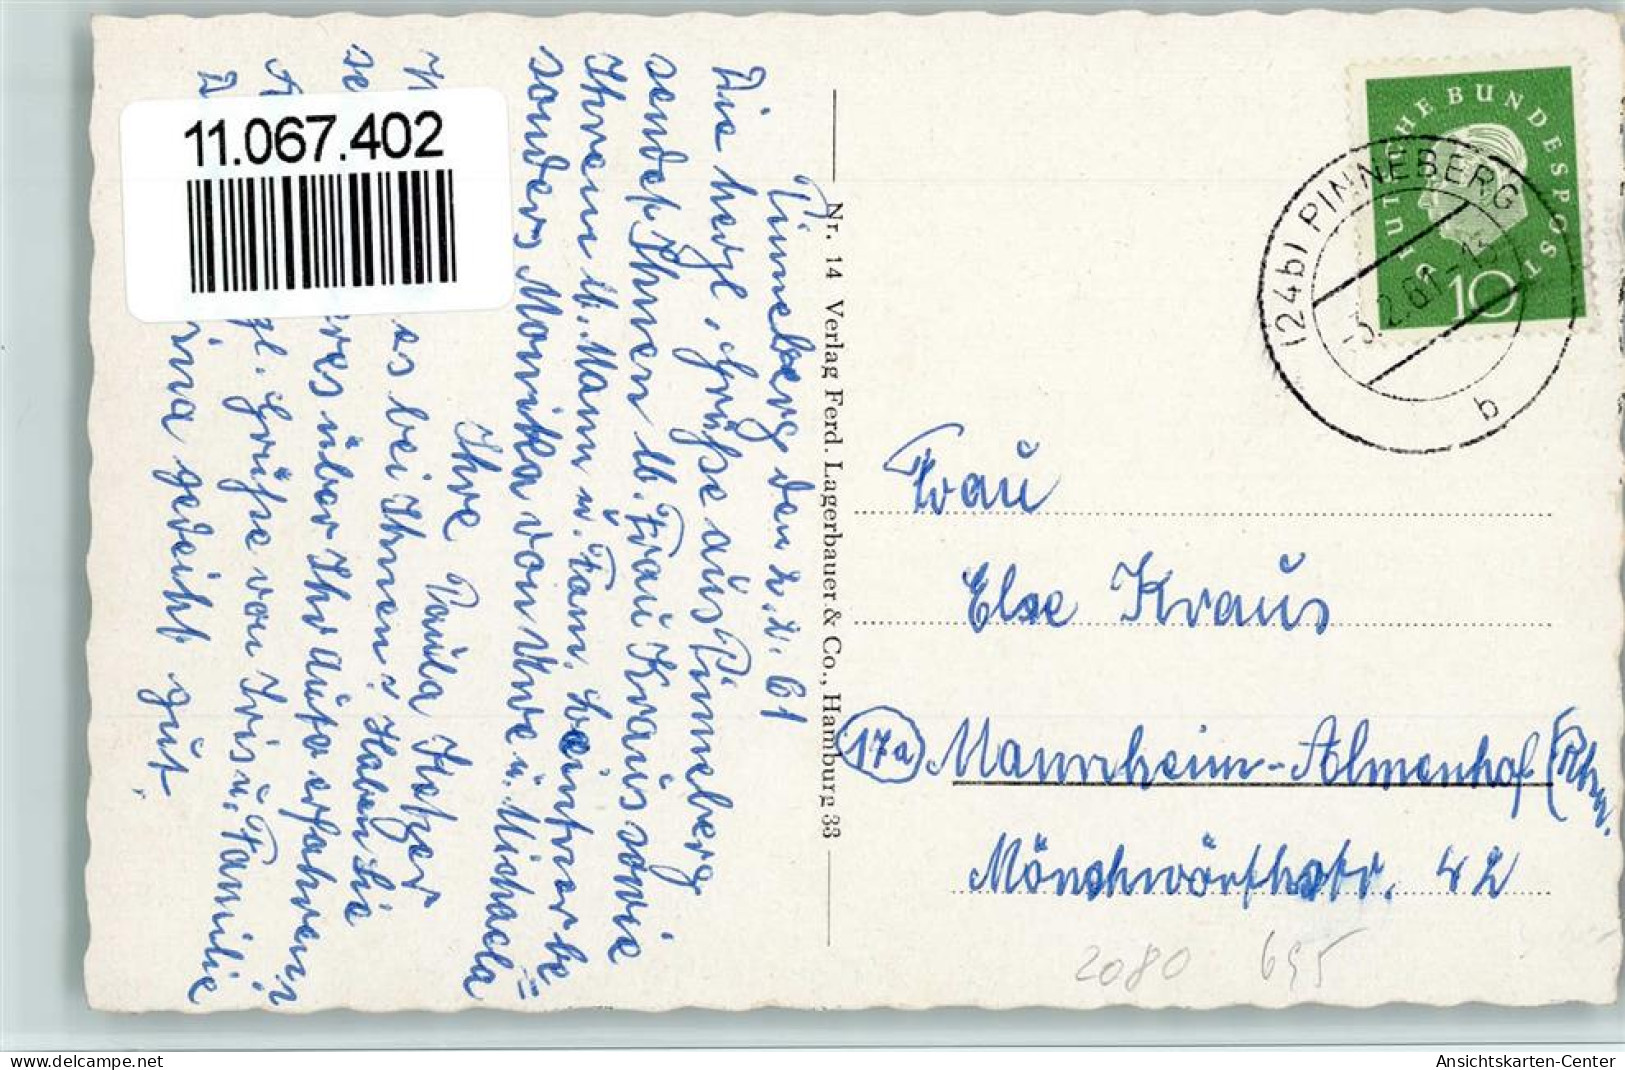 11.067.402
Pinneberg den 2.2.61
Die herzl. Grüße aus Pinneberg
sendet Ihnen lb. Frau Kraus sowie
Ihrem lb. Mann u. Fam.
sonders Monika von Uwe u. Michaela
Ihre Paula
es bei Ihnen? Haben Sie
res über Ihr Auto erfahren
gl. Grüße von Iris u. Familie
ina gedeiht gut.
Nr. 14 Verlag Ferd. Lagerbauer & Co., Hamburg 33
DEUTSCHE BUNDESPOST
10
(24b) PINNEBERG
-3.2.61-13
b
Frau
Else Kraus
17a Mannheim-Almenhof
Mönchwörthstr. 42
2080 695
www.delcampe.net
Ansichtskarten-Center